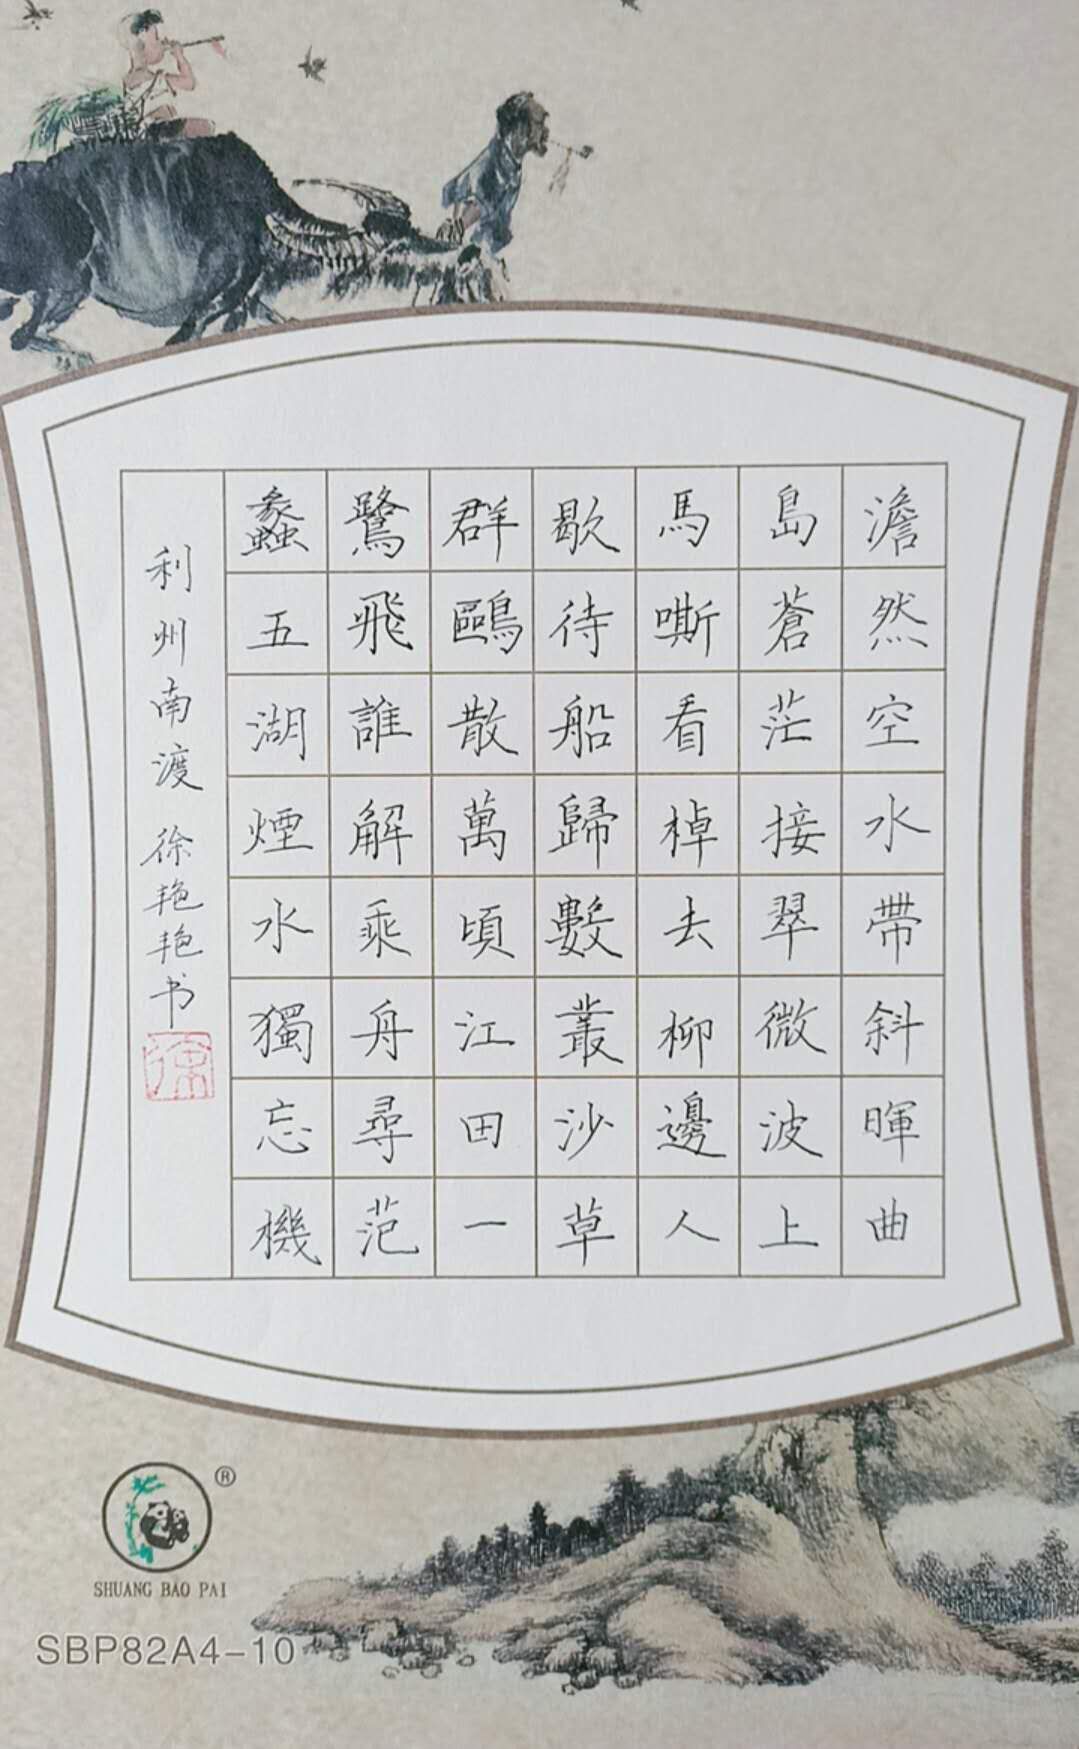 澹然空水帶斜暉曲
島蒼茫接翠微波上
馬嘶看棹去柳邊人
歇待船歸數叢沙草
群鷗散萬頃江田一
鷺飛誰解乘舟尋范
蠡五湖煙水獨忘機
利州南渡 徐艳艳书
徐
®
SHUANG BAO PAI
SBP82A4-10